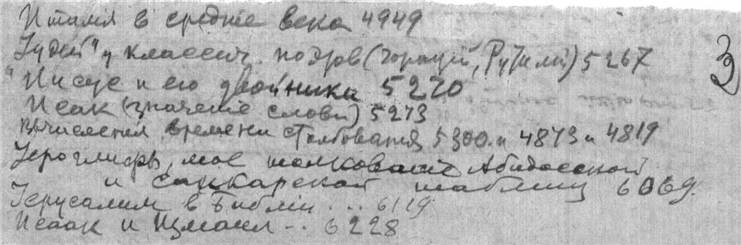 Италия в средние века 4949
Iудеи у классич. (Горацiй, Рутилiй) 5267
"Иисус и его двойники 5220
Исаак (значенiе слова) 5273
вычисления времени 5300 и 4873 и 4819
Iероглифы, мое толкование Абидосской
и Саккарской таблиц 6069.
Iерусалим в Библiи... 6119
Исаак и Измаил -.. 6228
З